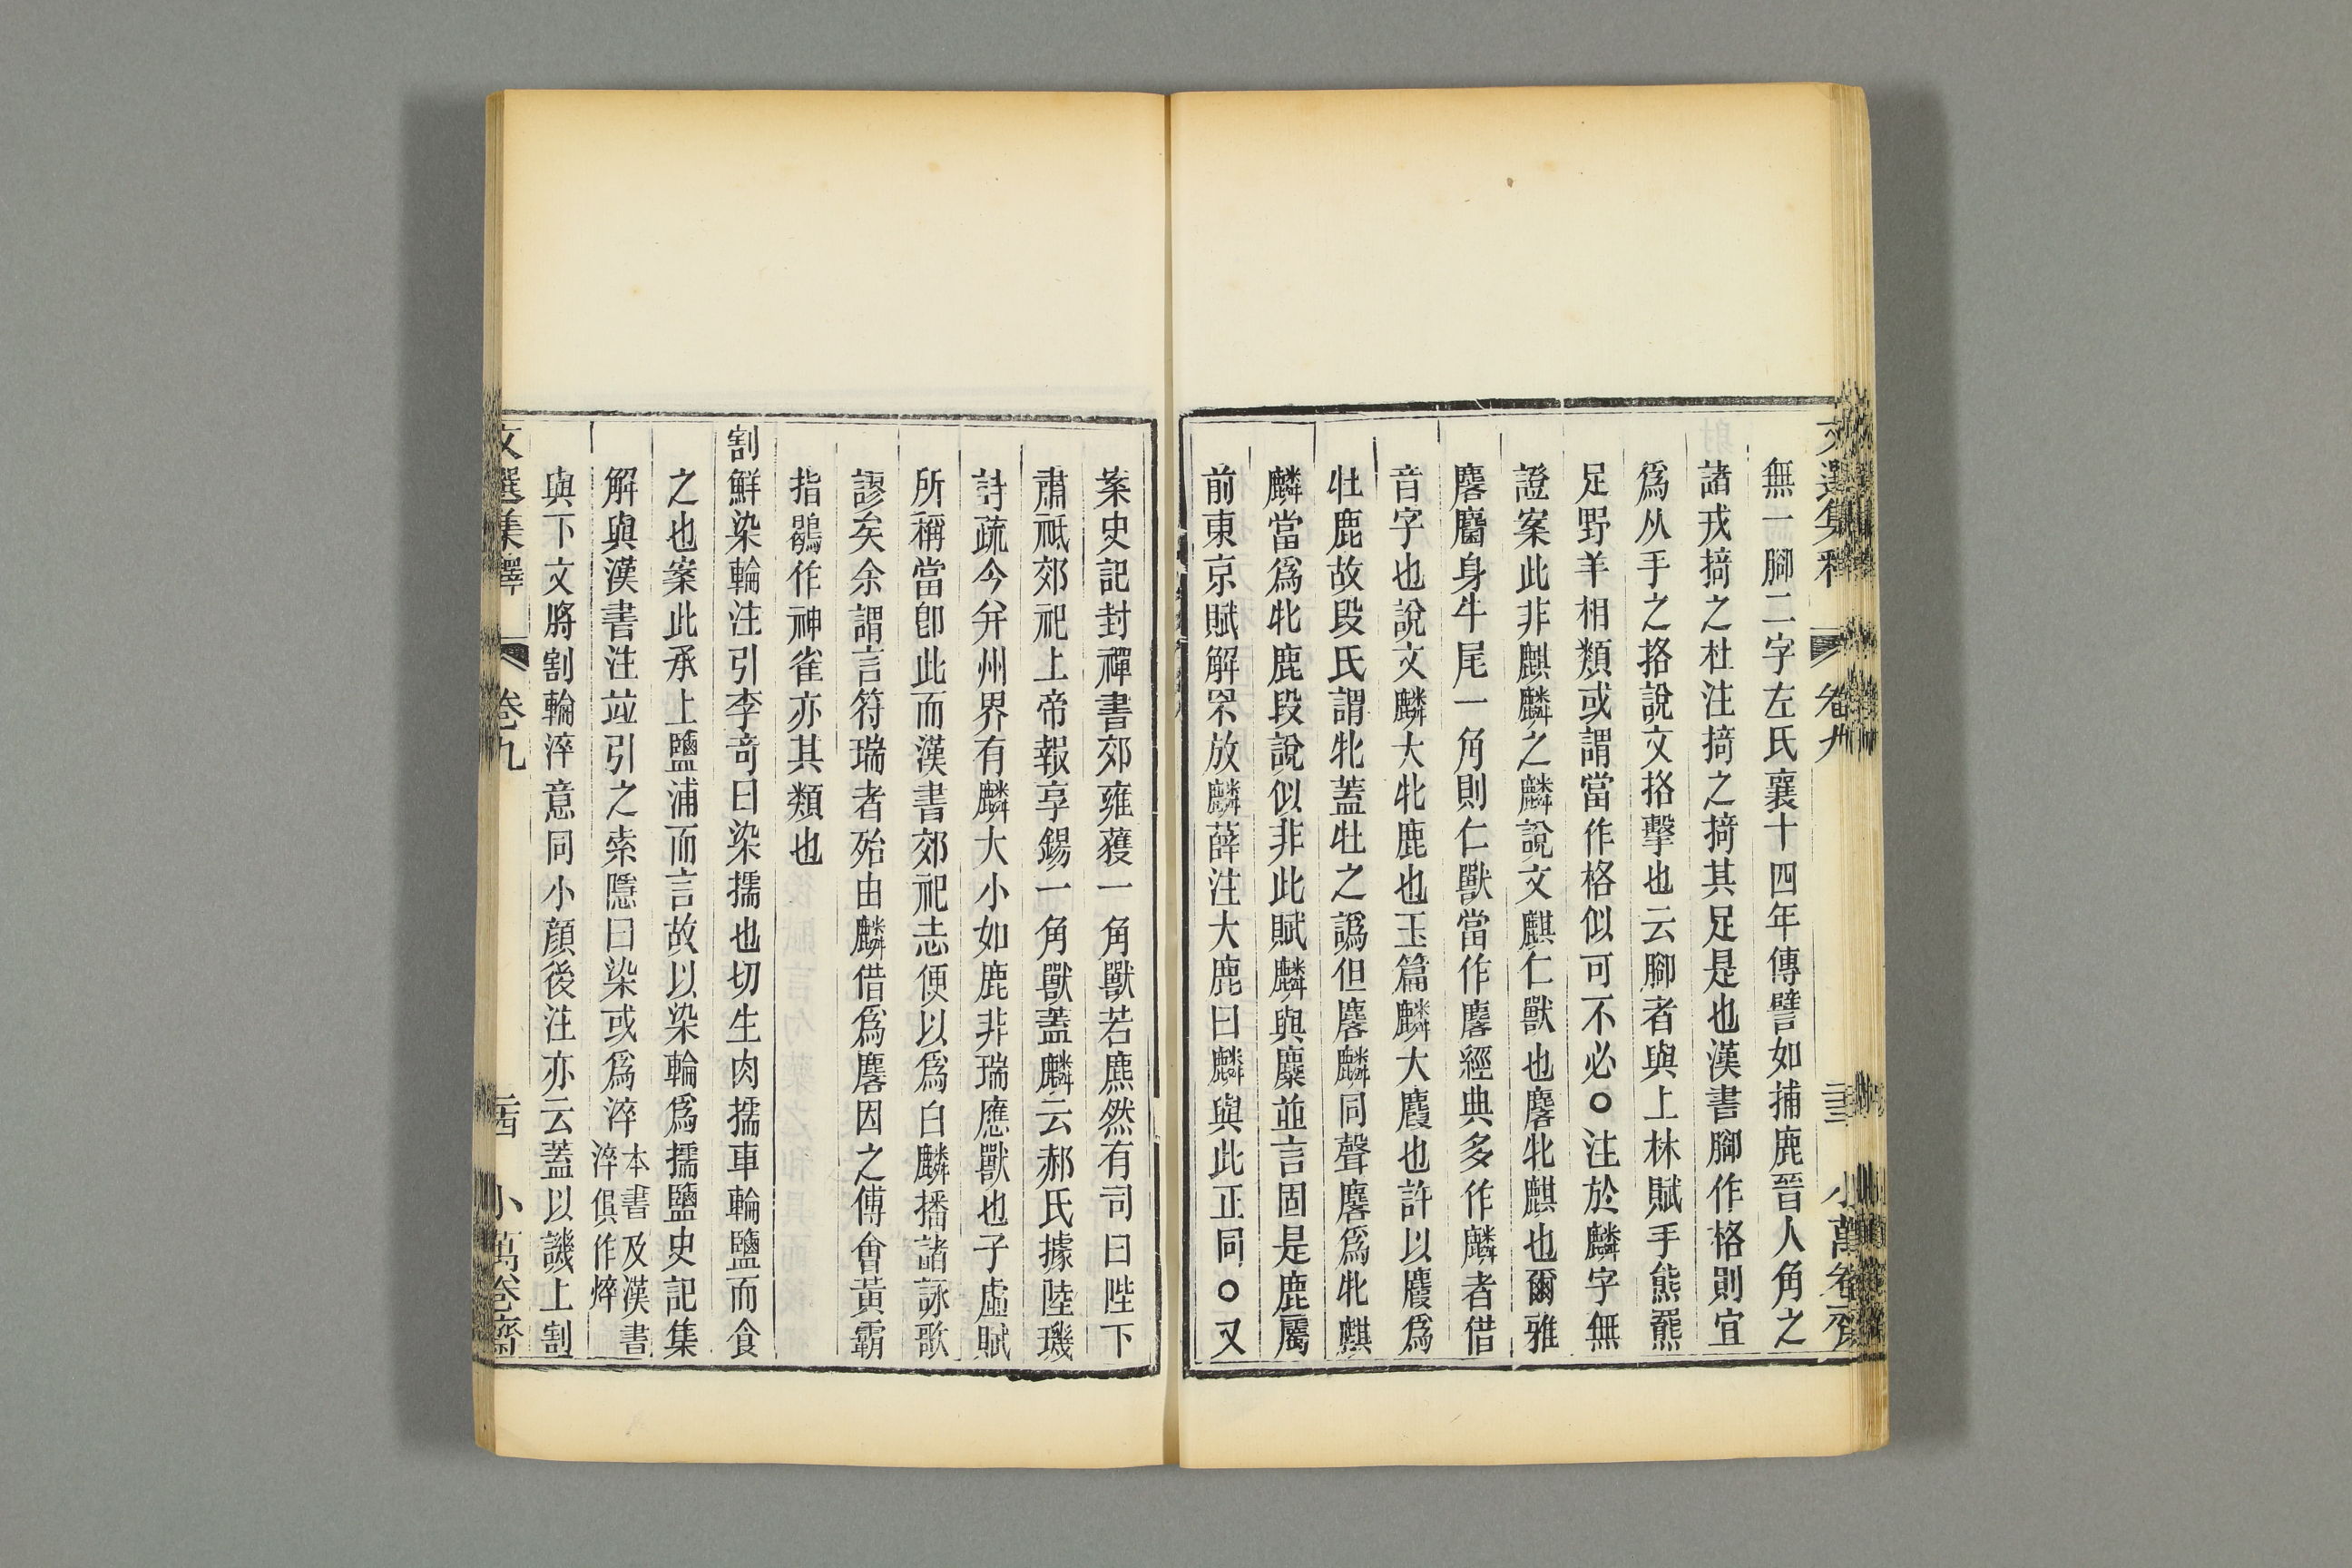 文選集釋 卷九 二十三 小萬卷齋
無一腳二字左氏襄十四年傳譬如捕鹿晉人角之
諸戎掎之杜注掎之掎其足是也漢書腳作格則宜
爲从手之挌說文挌擊也云腳者與上林賦手熊羆
足野羊相類或謂當作格似可不必○注於麟字無
證案此非麒麟之麟說文麒仁獸也麐牝麒也爾雅
麐麕身牛尾一角則仁獸當作麐經典多作麟者借
音字也說文麟大牝鹿也玉篇麟大麚也許以麚爲
牡鹿故段氏謂牝蓋牡之譌但麐麟同聲麐爲牝麒
麟當爲牝鹿段說似非此賦麟與麋並言固是鹿屬
前東京賦解罘放麟薛注大鹿曰麟與此正同○又
案史記封禪書郊雍獲一角獸若麃然有司曰陛下
肅祗郊祀上帝報享錫一角獸蓋麟云郝氏據陸璣
詩疏今幷州界有麟大小如鹿非瑞應獸也子虛賦
所稱當卽此而漢書郊祀志便以爲白麟播諸詠歌
謬矣余謂言符瑞者殆由麟借爲麐因之傅會黃霸
指鶡作神雀亦其類也
割鮮染輪注引李奇曰染擩也切生肉擩車輪鹽而食
之也案此承上鹽浦而言故以染輪爲擩鹽史記集
解與漢書注竝引之索隱曰染或爲淬本書及漢書淬俱作焠
與下文將割輪淬意同小顏後注亦云蓋以譏上割
文選集釋 卷九 二十四 小萬卷齋